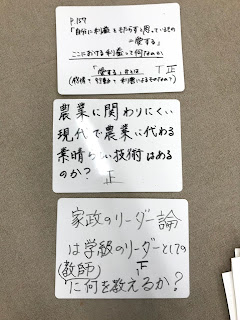 P.157
「自分に利益をもたらすと思っているもの
=愛する」
ここにおける利益って何なのか
T 正
「愛する」とは
(感情で行動で利害によるものなの?)
農業に関わりにくい
現代で農業に代わる
素晴らしい技術はある
のか? 正
家政のリーダー論
は学級のリーダーとしての
(教師) 正
に何を教えるか?